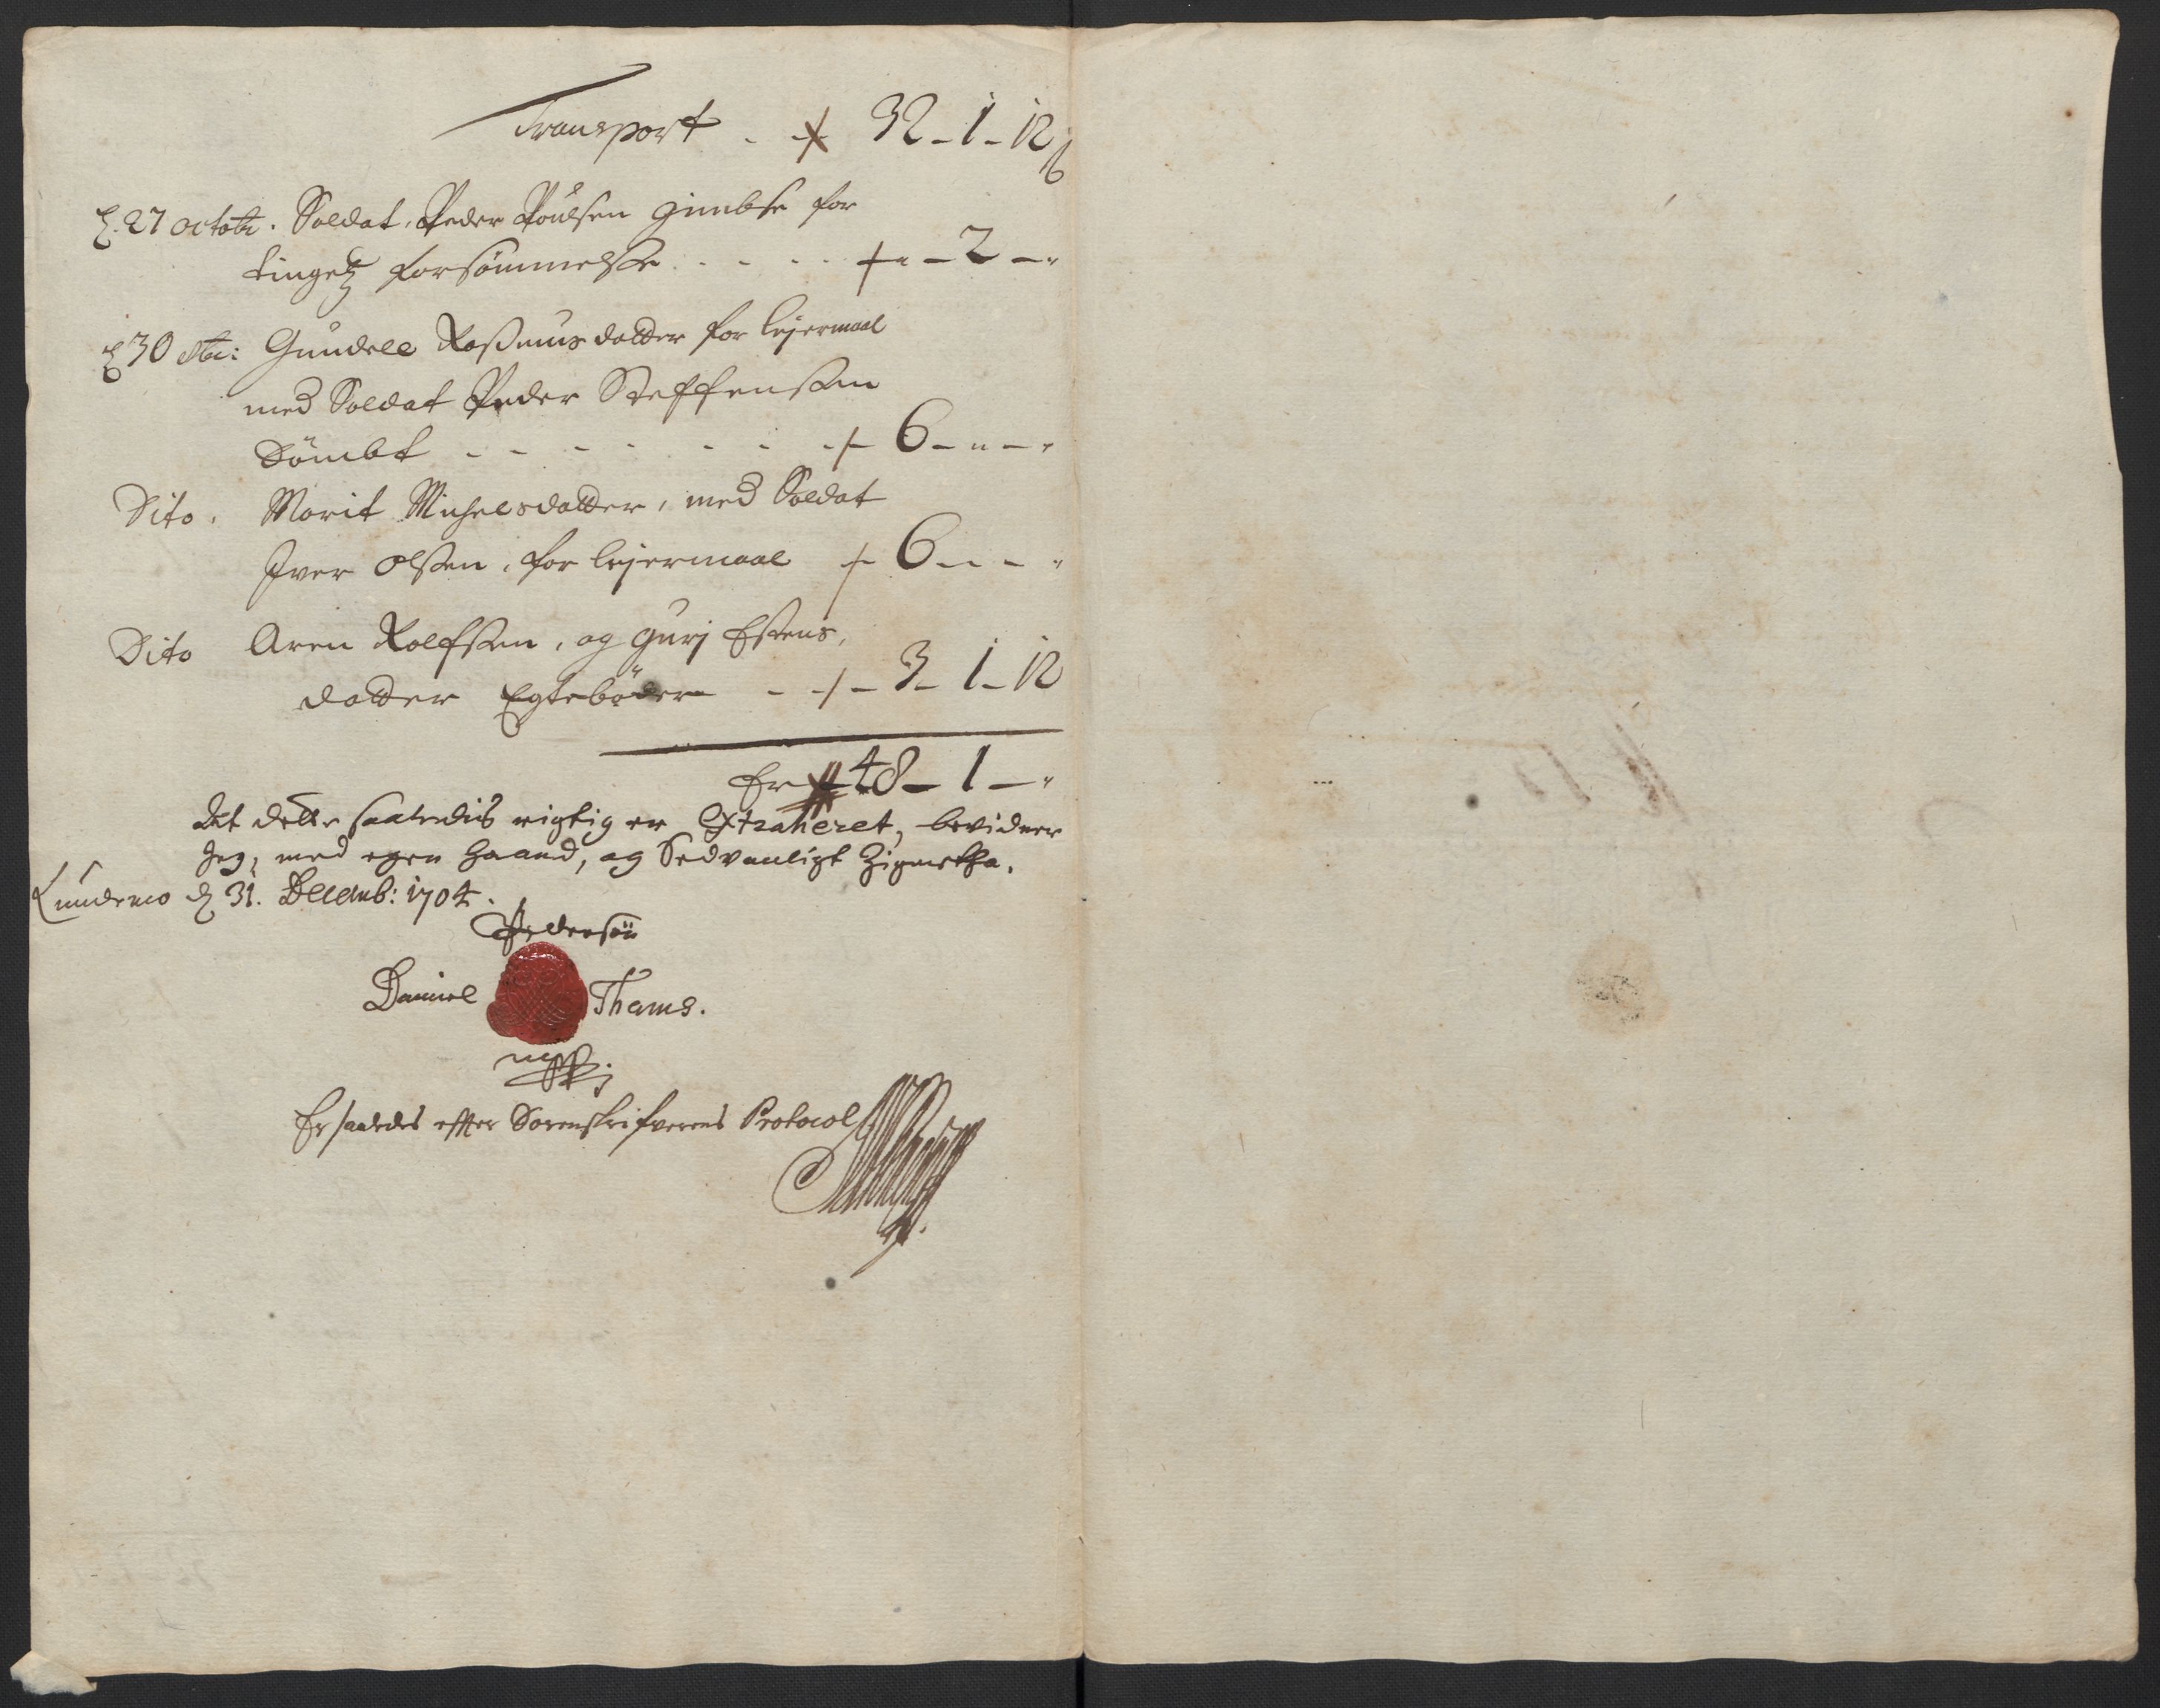 Transport . 32 - 1 - 12 ß
d. 27 octobr. Soldat, Peder Poulsen Gimbse for
tingetz forsømmelse . . . . - 2 - "
d 30 dto: Gundele Rasmus datter for leyermaal
med Soldat Peder Steffensen
Dømbt - - - - - - - 6 - " - "
Dito. Marit Michelsdatter, med Soldat
Iver Olsen, for leyermaal 6 - - - "
Dito Aren Rolfsen, og Gurj Estens,
datter Egtebøder - - 3 - 1 - 12
Er 48 - 1 - "
At dette saaledis rigtig er Extraheret, bevidner
Jeg, med egen Haand, og Sedvanligt Zignethe.
Lundemo d 31. Decemb: 1704.
Pedersøn
Daniel Thams.
mpp
Er saaledes efter Sorenskrifverens Protocol